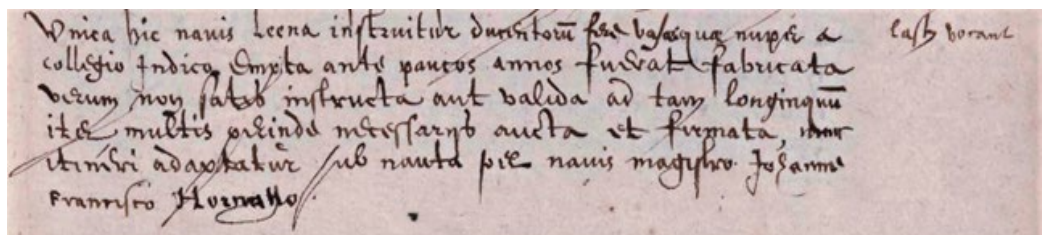 Unica hic navis Leena instruitur ducentorū fere vasa quæ nuper a
collegio Indico Empta ante paucos annos fuerat fabricata
verum non satis instructa aut valida ad tam longinquū
iter multis perinde necessarijs aucta et firmata, nunc
itineri adaptatur sub nauta sive navis magistro Johanne
Francisco
last vocant